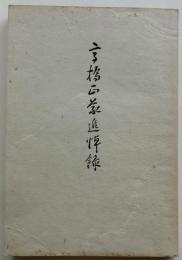 高橋正蔵追悼録